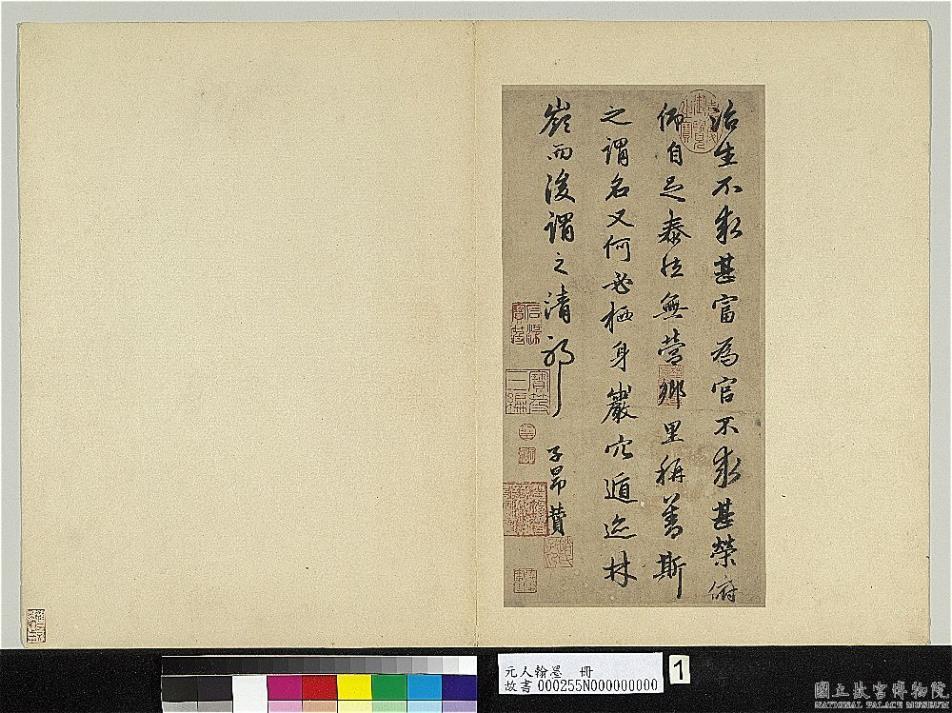 治生不求甚富為官不求甚榮俯
仰自足泰然無營鄉里稱善斯
之謂名又何必栖身巖穴遁迹林
嶺而後謂之清耶
子昂贊
元人翰墨 冊
故書 000255N000000000
1
國立故宮博物院
NATIONAL PALACE MUSEUM